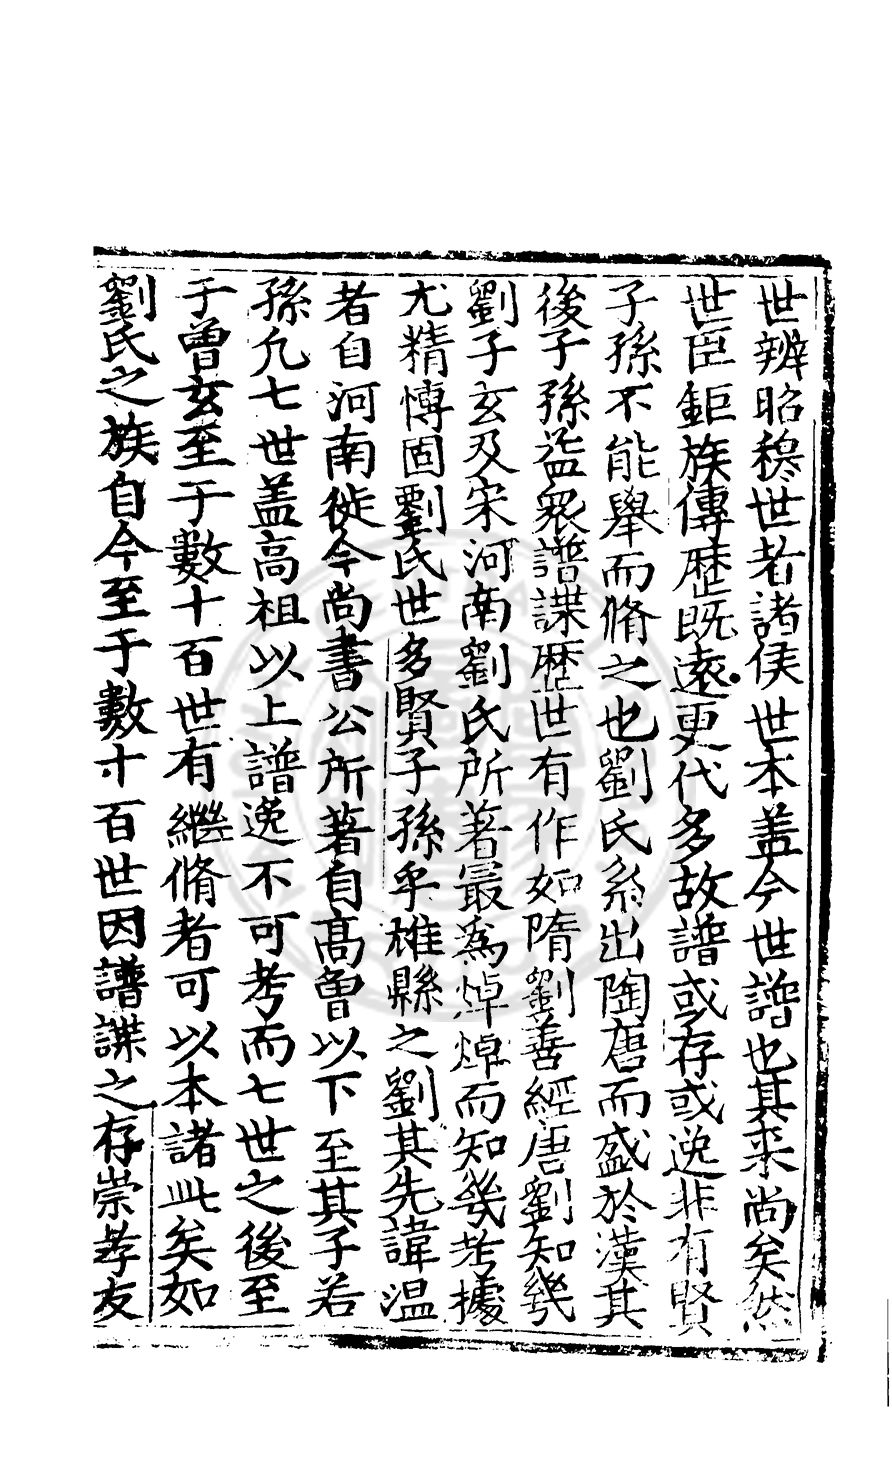 世辨昭穆世者諸侯世本盖今世譜也其来尚矣然
世臣鉅族傳歴既逺更代多故譜或存或逸非有賢
子孫不能舉而脩之也劉氏系出陶唐而盛於漢其
後子孫益衆譜諜歴世有作如隋劉善經唐劉知幾
劉子玄及宋河南劉氏所著最為焯焯而知幾考據
尤精慱固劉氏世多賢子孫乎雄縣之劉其先諱温
者自河南徙今尚書公所著自髙曾以下至其子若
孫凢七世盖高祖以上譜逸不可考而七世之後至
于曾玄至于數十百世有繼脩者可以本諸此矣如
劉氏之族自今至于數十百世因譜諜之存崇孝友